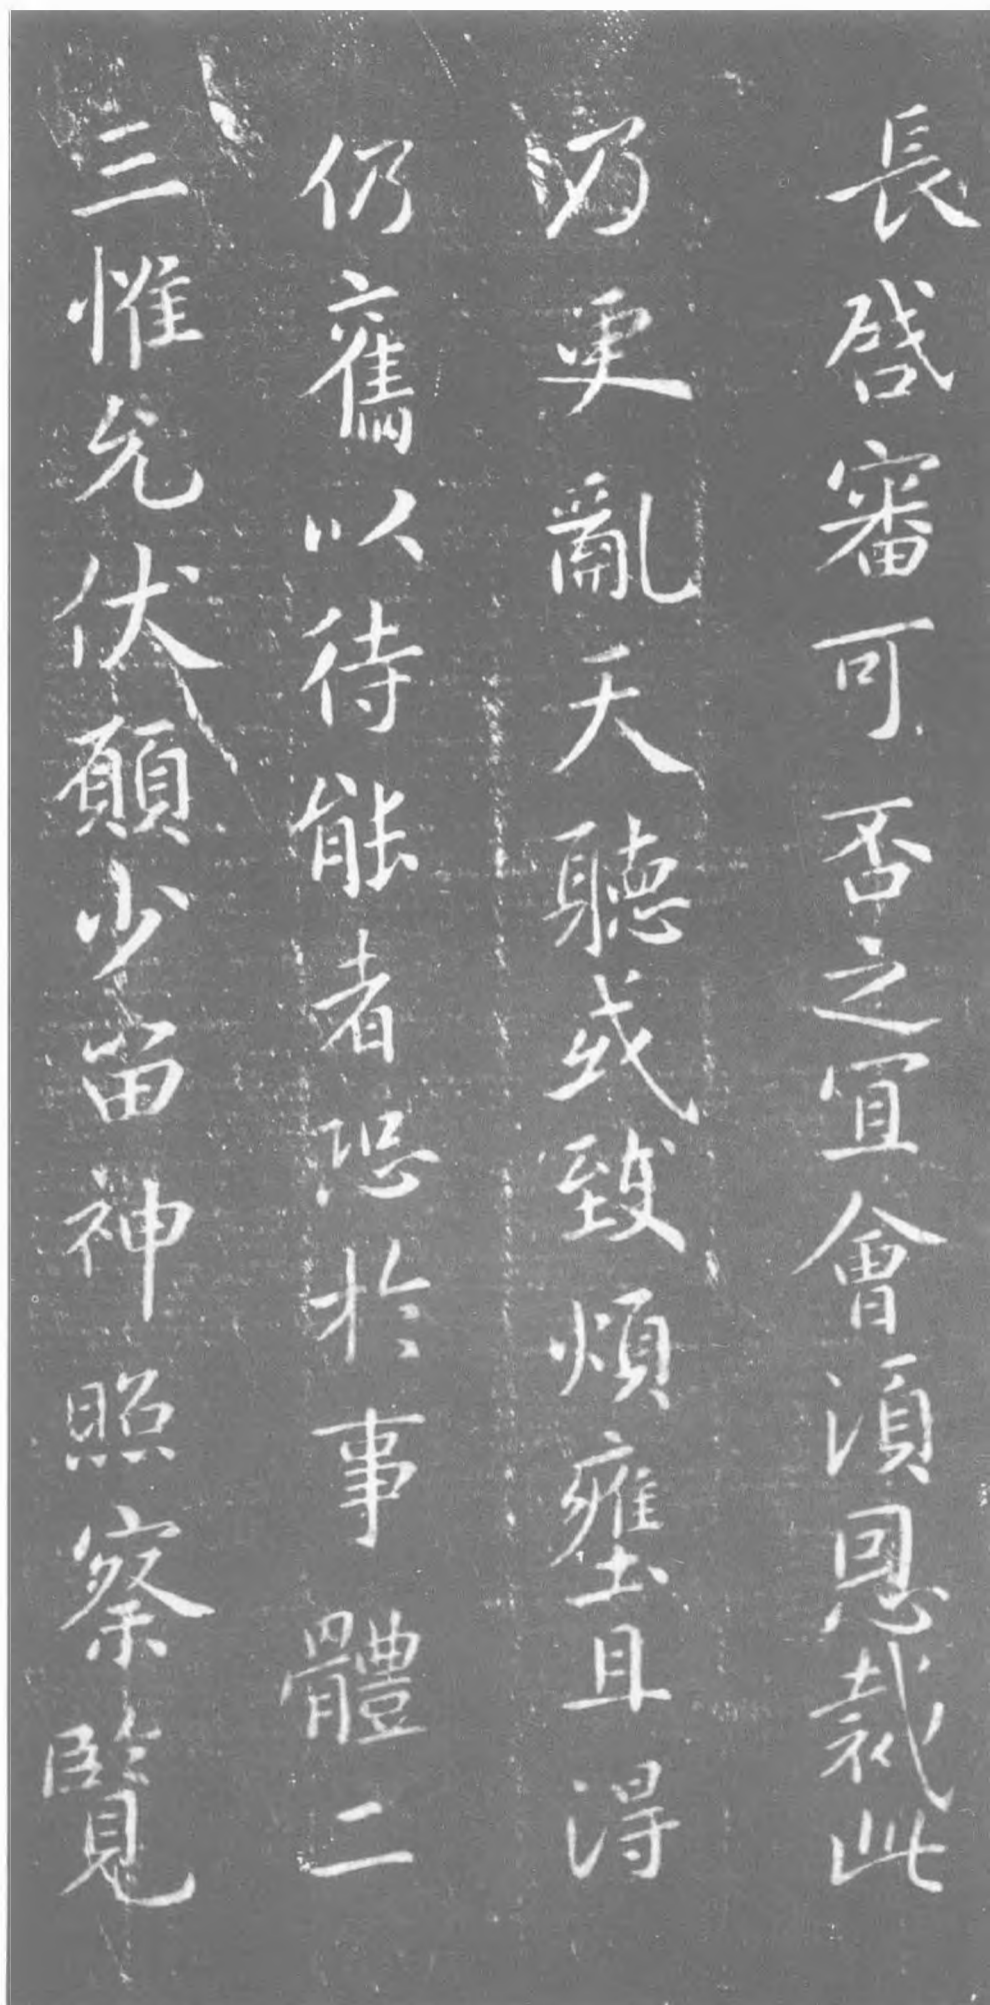 長啓審可否之宜會湏恩裁此
乃更亂天聽或致煩壅且淂
仍舊以待能者恐於事體二
三惟允伏願少留神照察覽